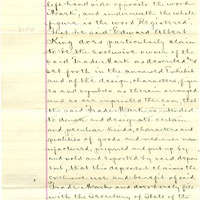 left hand side opposite the word
Mark, and underneath the whole
figure, is the word Registered,
That he said Edward Albert
King does particularly claim
to be the exclusive owner of the
said Trade Mark as described &
set forth in the annexed exhibit
and of the design, characters, figu-
res and symbols as therein arranged
and as are imprinted thereon, that
the said Trade Mark is intended
to denote and designate certain
and peculiar kinds, characters and
qualities of goods and medicines man-
ufactured, prepared and put up by
and sold and exported by said depon-
ent, that this deponent claims the
exclusive use and benefit of said
Trade Mark and
with the Secretary of State of the